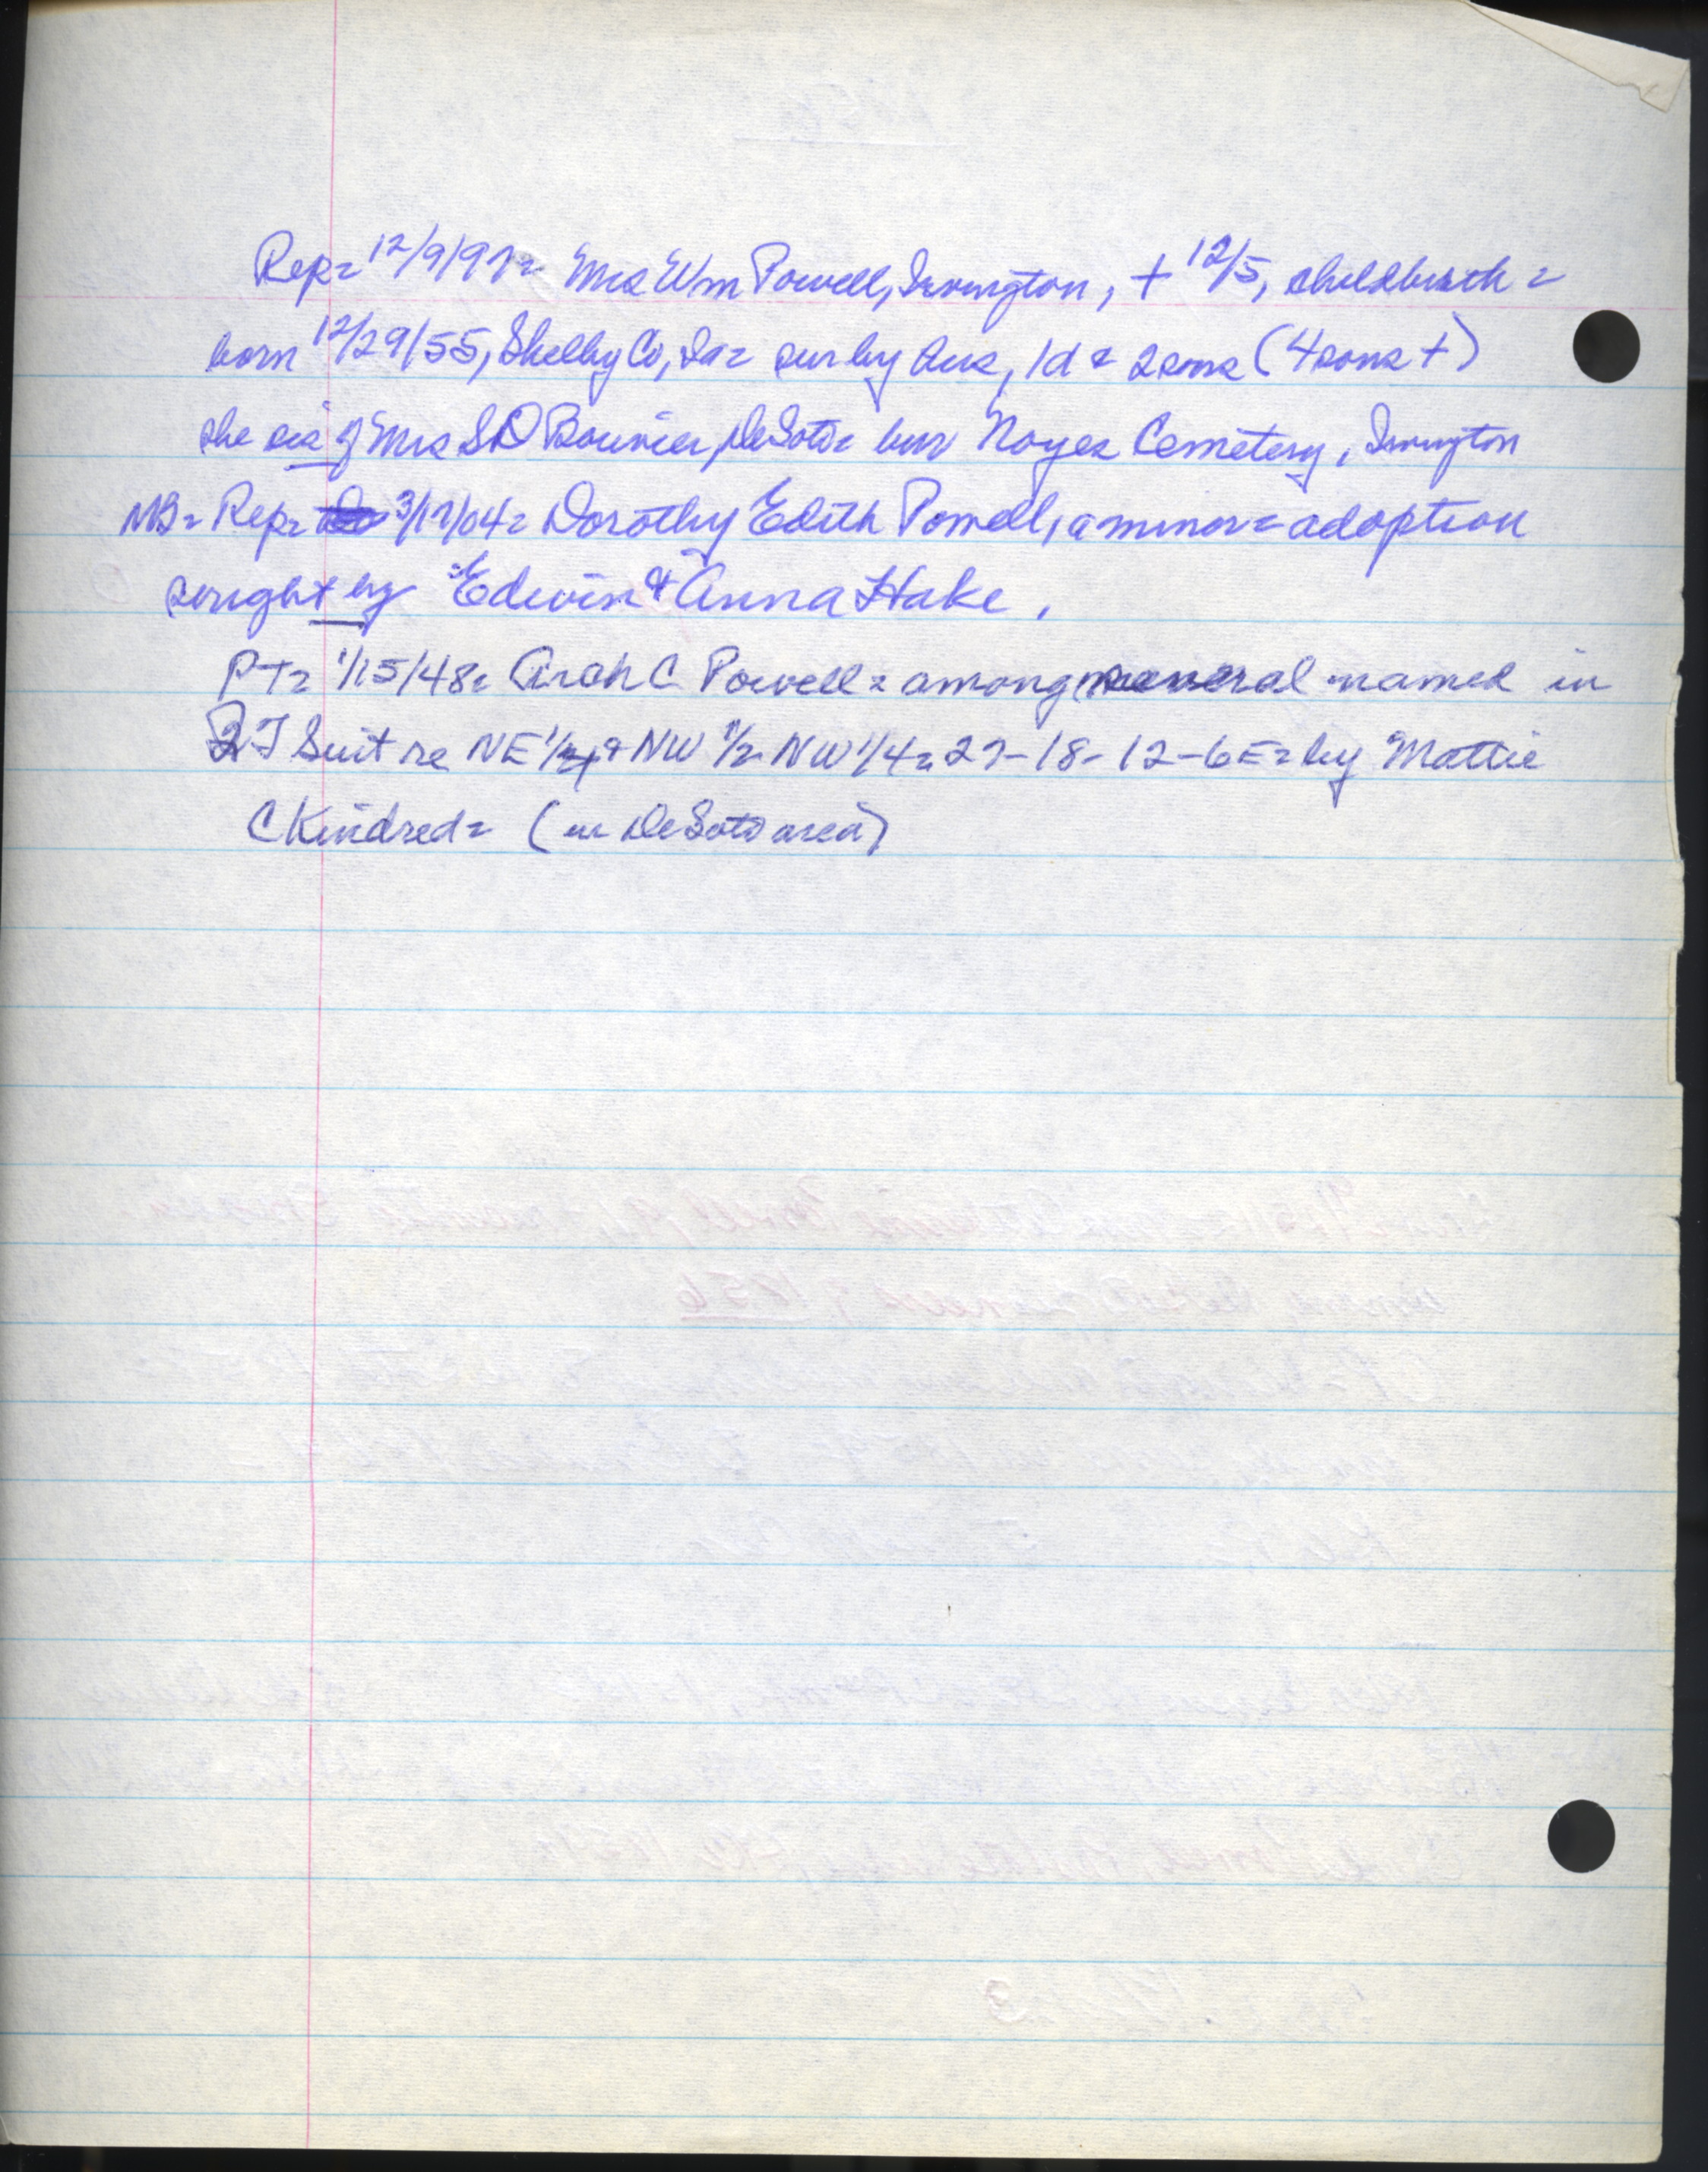 Rep = 12/9/97 = Mrs Wm Powell, Irvington, + 12/5, childbirth =
born 12/29/55, Shelby Co, Ia = sur by hus, 1d & 2 sons (4 sons +)
she sis of Mrs S D Bouvier, DeSoto = bur Noyes Cemetery, Irvington
NB = Rep = 3/17/04 = Dorothy Edith Powell, a minor = adoption
sought by Edwin & Anna Hake.
PT = 1/15/48 = Arch C Powell = among several named in
QT Suit re NE 1/4 & NW 1/2 NW 1/4 = 27-18-12-6E = by Mattie
C Kindred = (in DeSoto area)